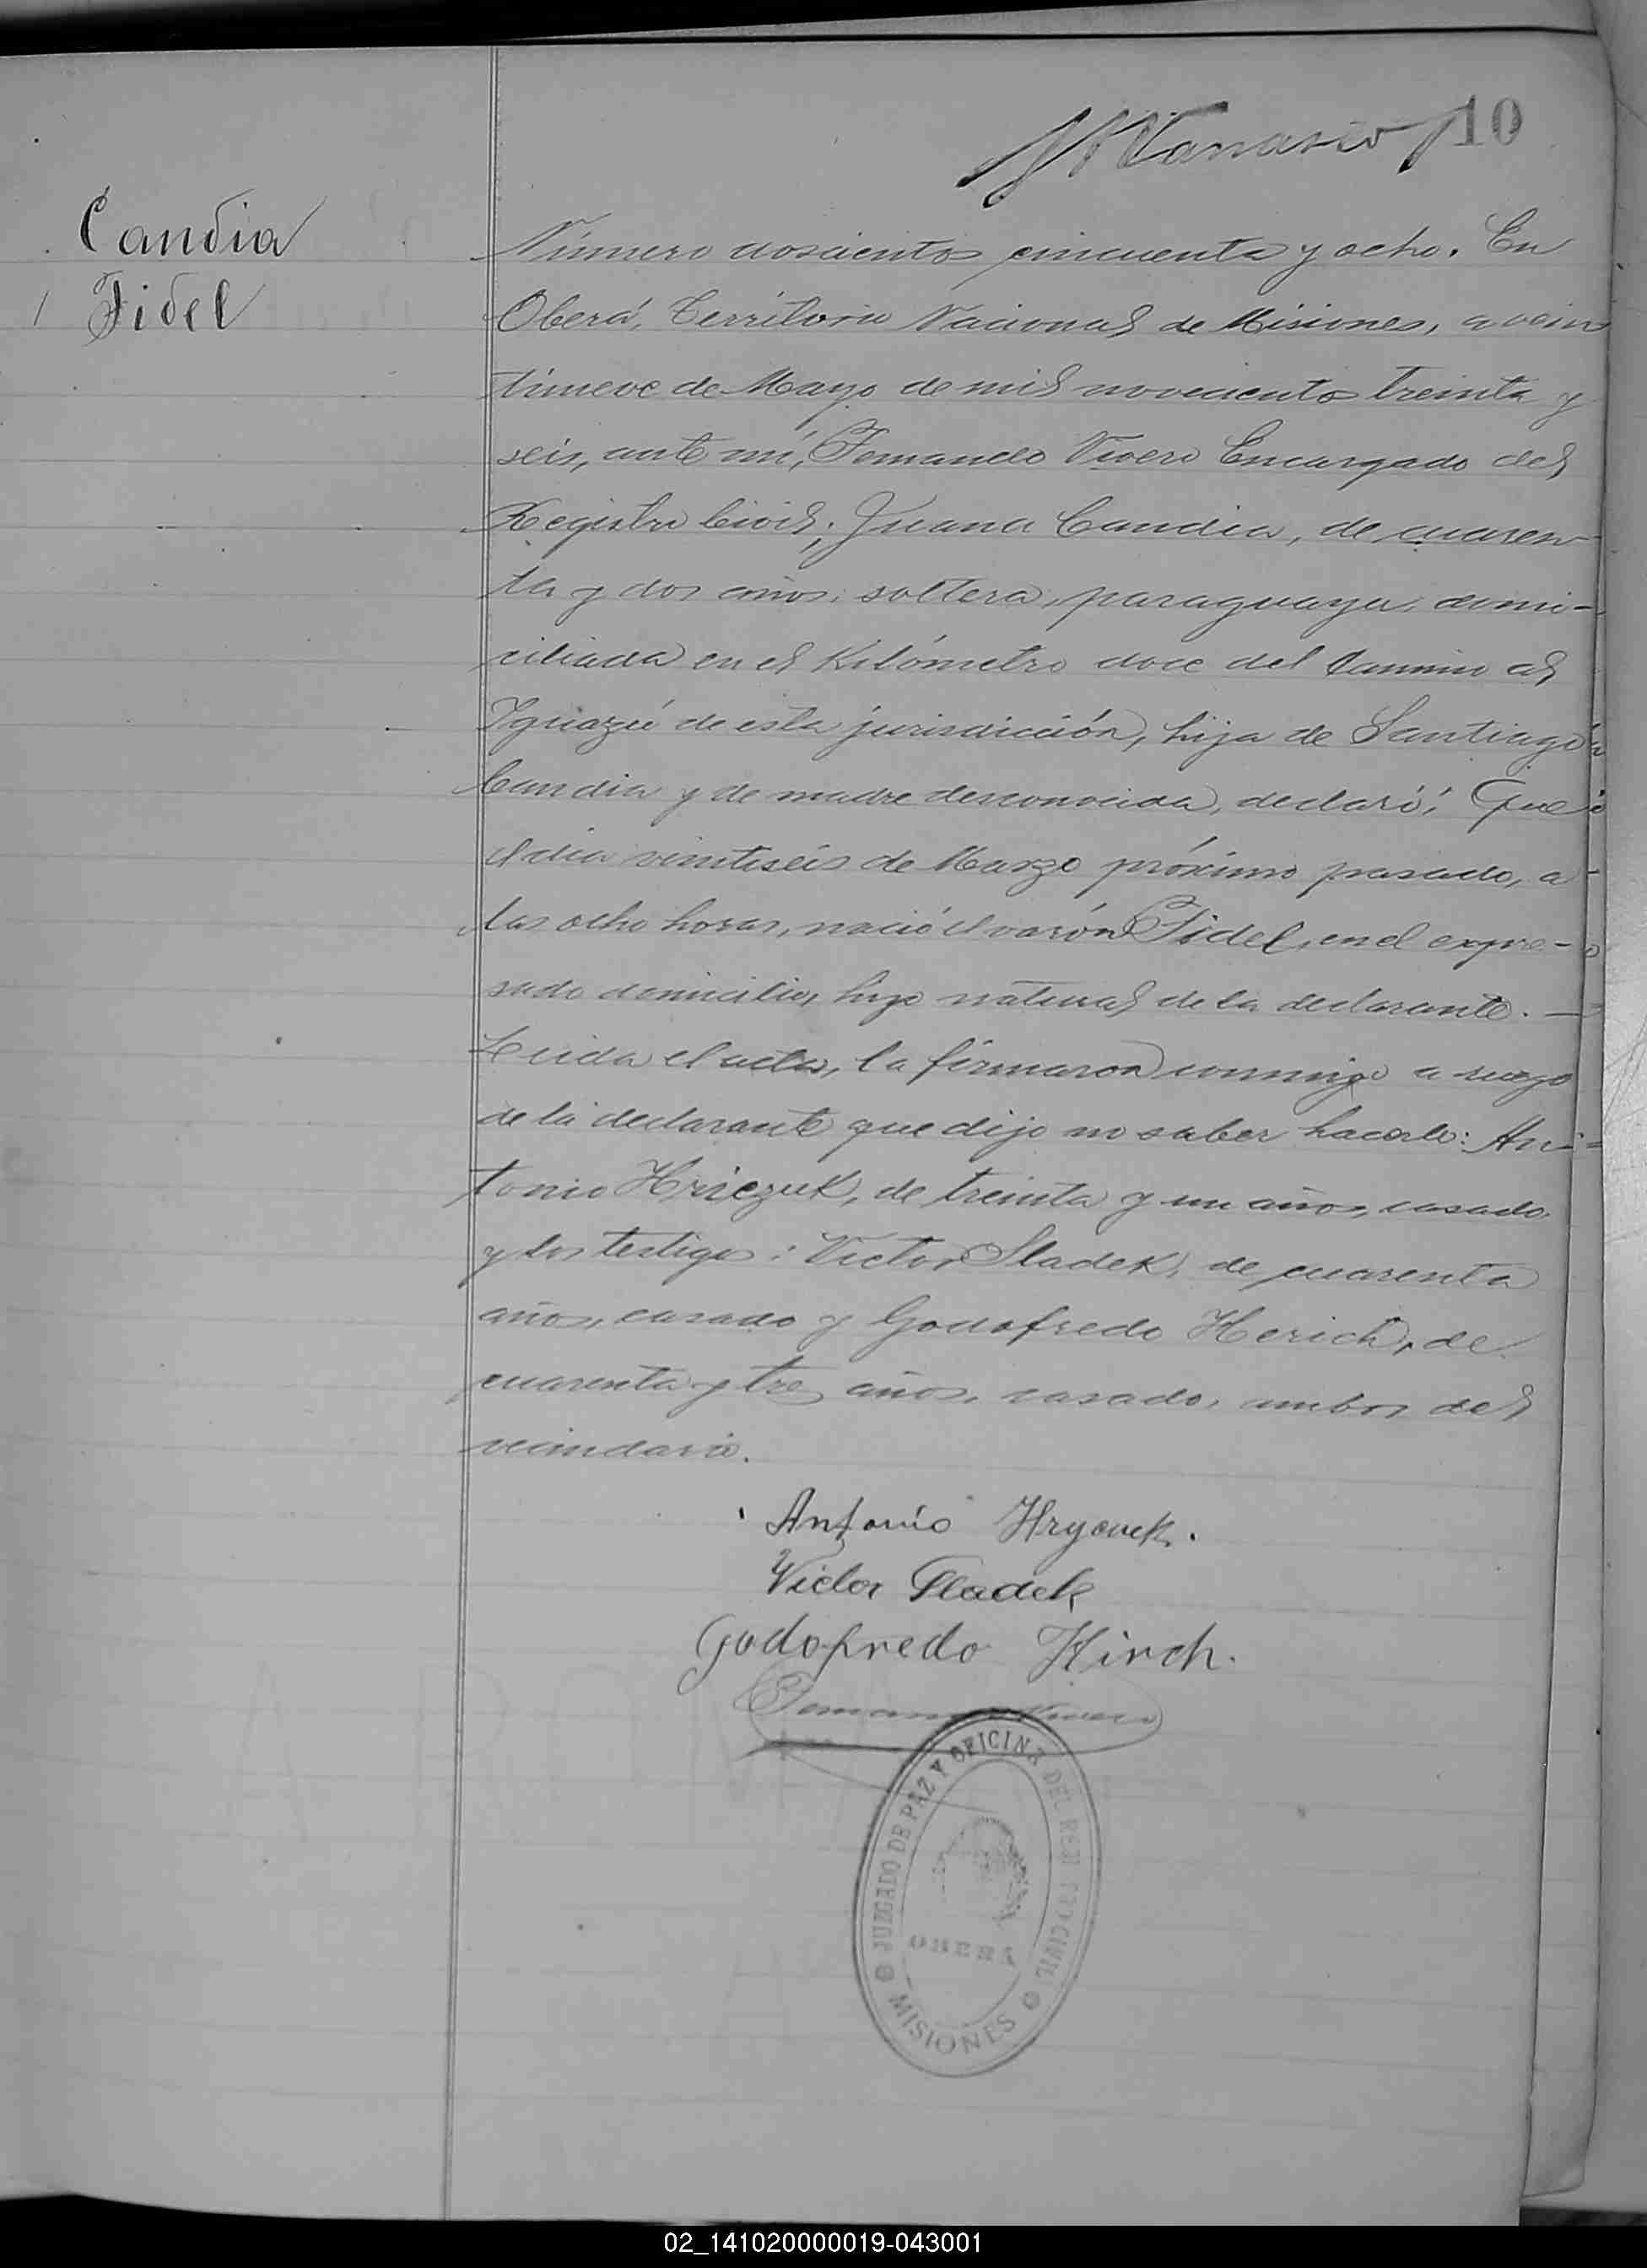 10
Candia
Fidel
Número doscientos cincuenta y ocho. En
Oberá, Territorio Nacional de Misiones, a vein
tinueve de Mayo de mil novecientos treinta y
seis, ante mí, Fernando Vivero Encargado del
Registro Civil; Juana Candia, de cuaren-
ta y dos años, soltera, paraguaya, domi-
ciliada en el Kilómetro doce del Camino al
Yguazú de esta jurisdicción, hija de Santiago
Candia y de madre desconocida, declaró: Que
el día veintiseis de Marzo próximo pasado, a
las ocho horas, nació el varón Fidel, en el expre-
sado domicilio, hijo natural de la declarante. —
Leida el acta, la firmaron conmigo a ruego
de la declarante que dijo no saber hacerlo: An-
tonio Hriczuk, de treinta y un años, casado,
y los testigos: Victor Sladek, de cuarenta
años, casado y Godofredo Herich, de
cuarenta y tres años, casado, ambos del
vecindario.
Antonio Hrycuck.
Victor Sladek
Godofredo Hirch.
Fernando Vivero
JUZGADO DE PAZ Y OFICINA DEL REGISTRO CIVIL
OBERÁ
MISIONES
02_141020000019-043001